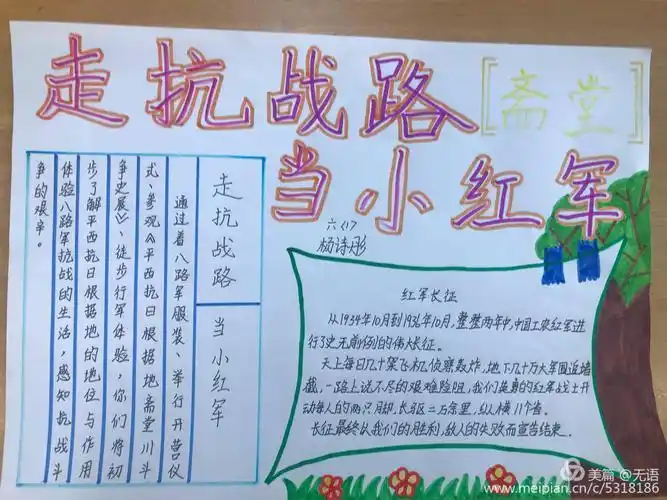 走抗战路[斋堂]
当小红军
六(1)
杨诗彤
走抗战路
当小红军
通过着八路军服装、举行开营仪
式、参观《平西抗日根据地斋堂川斗
争史展》、徒步行军体验,你们将初
步了解平西抗日根据地的地位与作用
体验八路军抗战的生活,感知抗战斗
争的艰辛。
红军长征
从1934年10月到1936年10月,整整两年中,中国工农红军进
行了史无前例的伟大长征。
天上每日几十架飞机侦察轰炸,地下几十万大军围追堵
截,一路上说不尽的艰难险阻,我们英勇的红军战士开
动每人的两只脚,长驱二万余里,纵横11个省。
长征最终以我们的胜利,敌人的失败而宣告结束.
美篇 @无语
www.meipian.cn/c/5318186